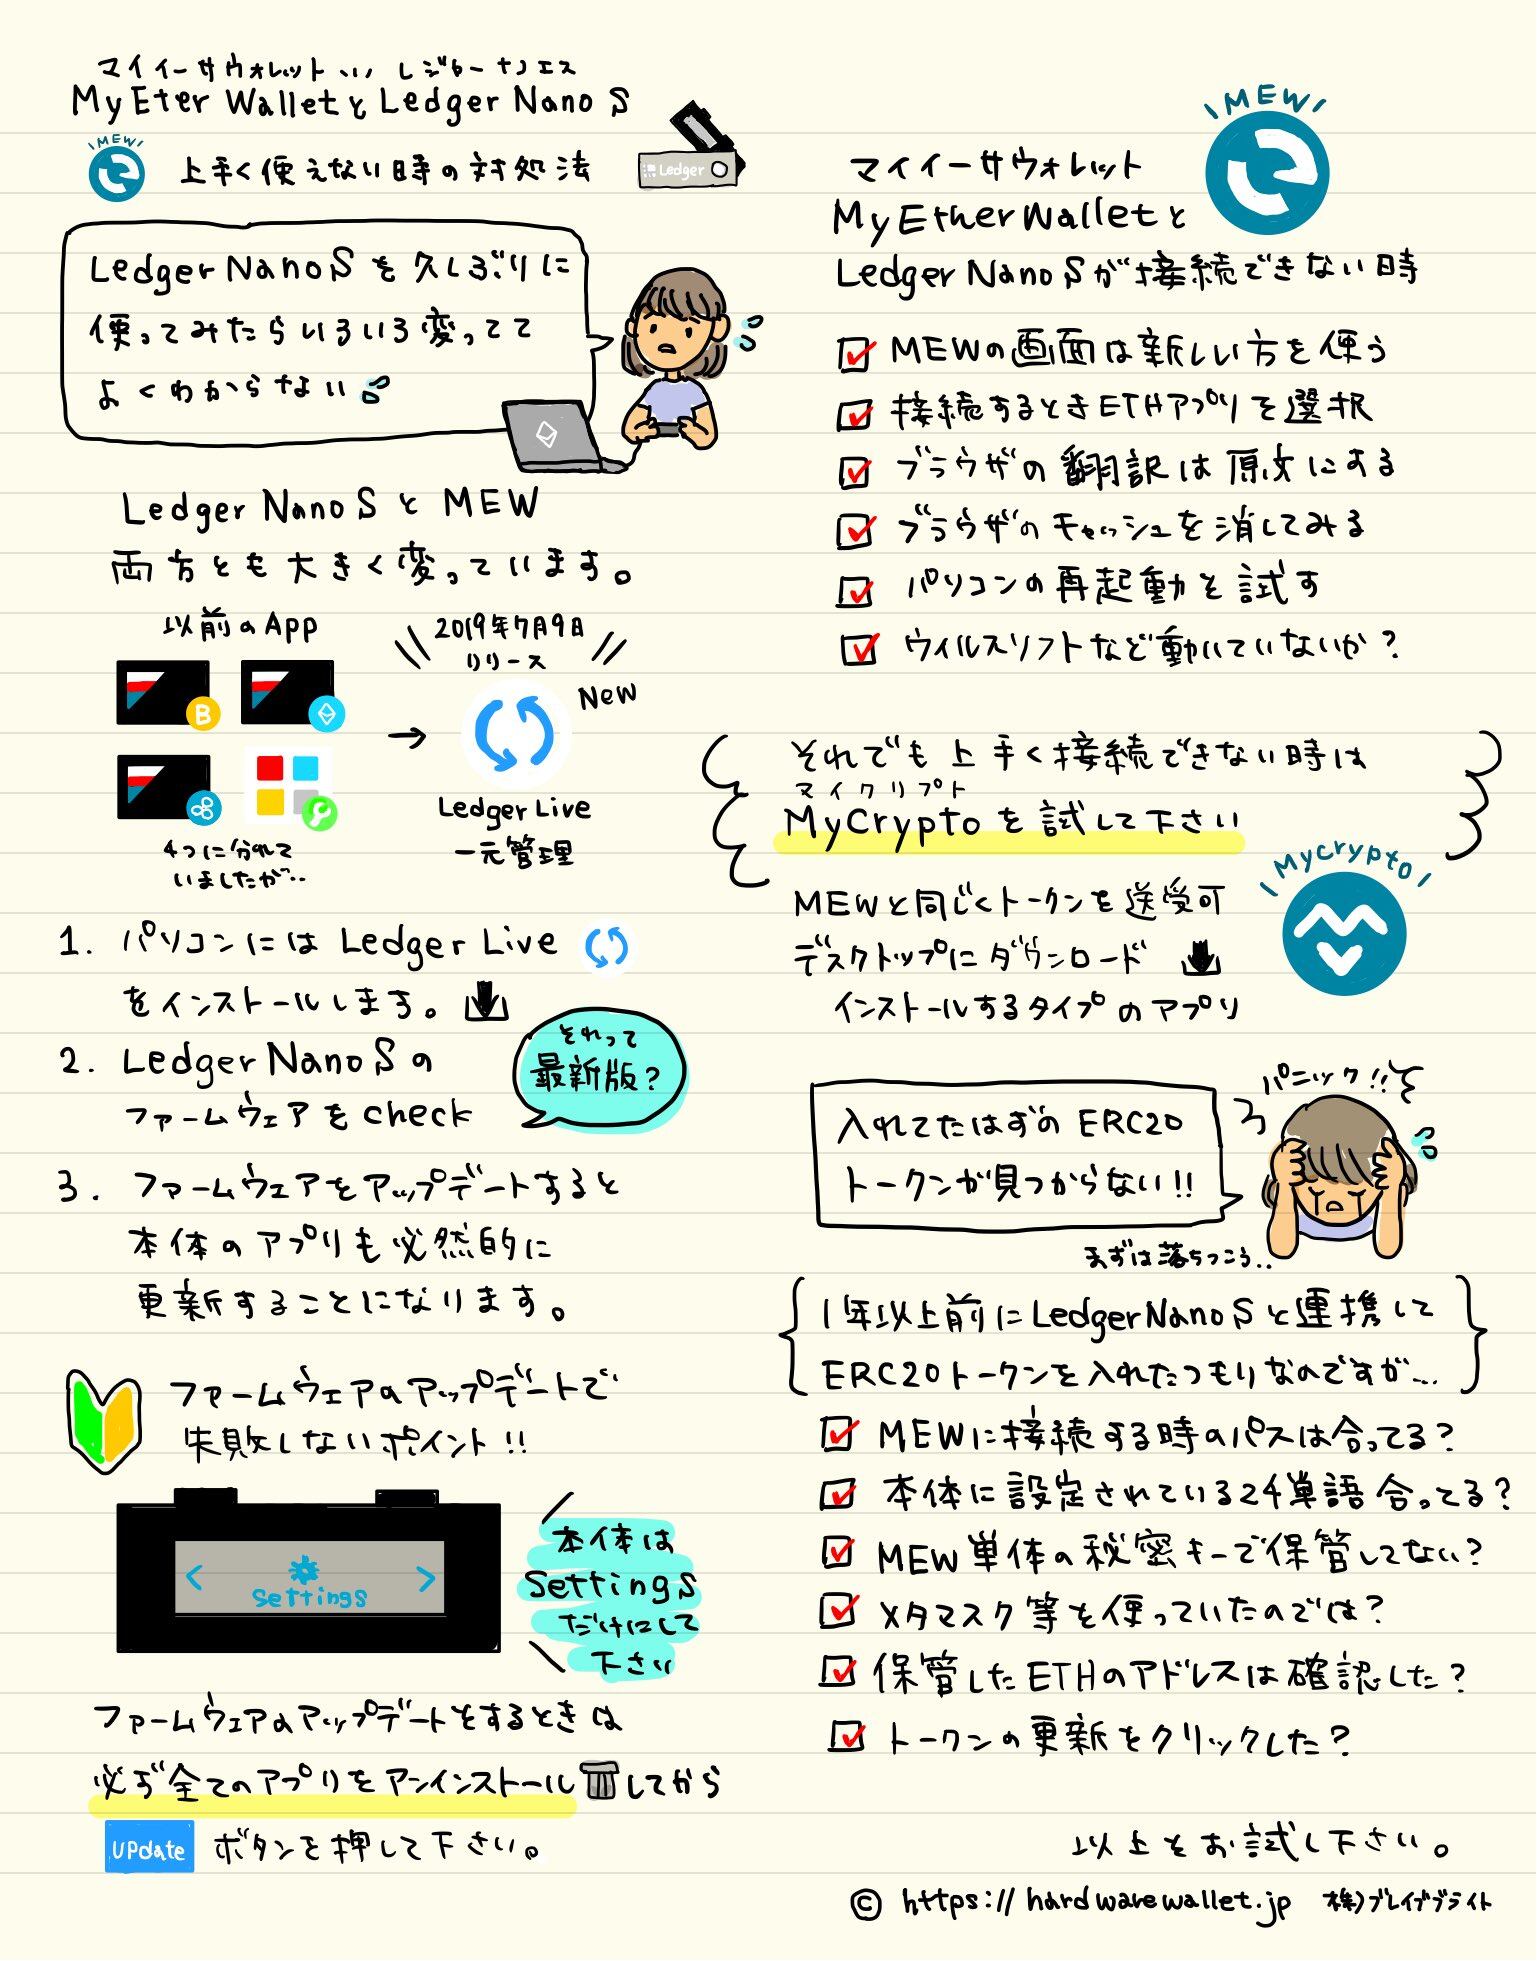 マイイーサウォレット レジャーナノエス
MyEter WalletとLedger Nano S
MEW
上手く使えない時の対処法
Ledger
Ledger Nano Sを久しぶりに
使ってみたらいろいろ変ってて
よくわからない
Ledger Nano SとMEW
両方とも大きく変っています。
以前のApp
2019年7月9日
リリース
New
B
4つに分れて
いましたが..
Ledger Live
一元管理
1. パソコンには Ledger Live
をインストールします。
2. Ledger Nano Sの
ファームウェアをcheck
それって
最新版?
3. ファームウェアをアップデートすると
本体のアプリも必然的に
更新することになります。
ファームウェアのアップデートで
失敗しないポイント!!
< Settings >
本体は
Settings
だけにして
下さい
ファームウェアのアップデートをするときは
必ず全てのアプリをアンインストールしてから
UPdate ボタンを押して下さい。
MEW
マイイーサウォレット
MyEtherWalletと
Ledger Nano Sが接続できない時
MEWの画面は新しい方を使う
接続するときETHアプリを選択
ブラウザの翻訳は原文にする
ブラウザのキャッシュを消してみる
パソコンの再起動を試す
ウィルスソフトなど動いていないか?
それでも上手く接続できない時は
マイクリプト
MyCryptoを試して下さい
Mycrypto
MEWと同じくトークンを送受可
デスクトップにダウンロード
インストールするタイプのアプリ
パニック!!
入れてたはずのERC20
トークンが見つからない!!
まずは落ちつこう..
1年以上前にLedger Nano Sと連携して
ERC20トークンを入れたつもりなのですが...
MEWに接続する時のパスは合ってる?
本体に設定されている24単語合ってる?
MEW単体の秘密キーで保管してない?
メタマスク等を使っていたのでは?
保管したETHのアドレスは確認した?
トークンの更新をクリックした?
以上をお試し下さい。
© https://hardwarewallet.jp 株)ブレイブブライト